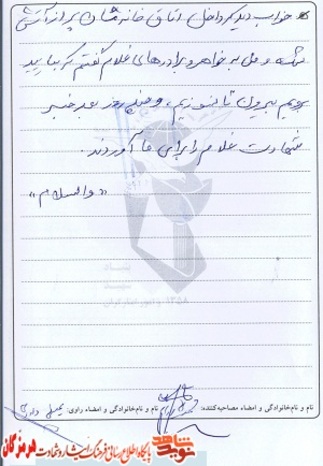 خواب دید که داخل اتاق خانه شان پر از آتش
شده و من به خواهر و برادرهای غلام گفتم که بیایید
برویم بیرون تا نسوزیم. و چند روز بعد خبر
شهادت غلام را برای ما آوردند.
«والسلام»
بنیاد
نام و نام خانوادگی و امضاء مصاحبه کننده: نام و نام خانوادگی و امضاء راوی:
نوید شاهد پایگاه اطلاع رسانی فرهنگ ایثار و شهادت هرمزگان